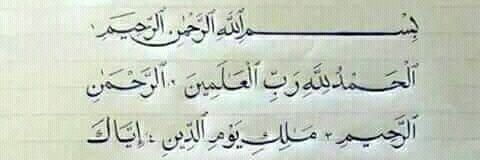 بِسْمِ اللَّهِ الرَّحْمَٰنِ الرَّحِيمِ ١
الْحَمْدُ لِلَّهِ رَبِّ الْعَٰلَمِينَ ٢ الرَّحْمَٰنِ
الرَّحِيمِ ٣ مَٰلِكِ يَوْمِ الدِّينِ ٤ إِيَّاكَ